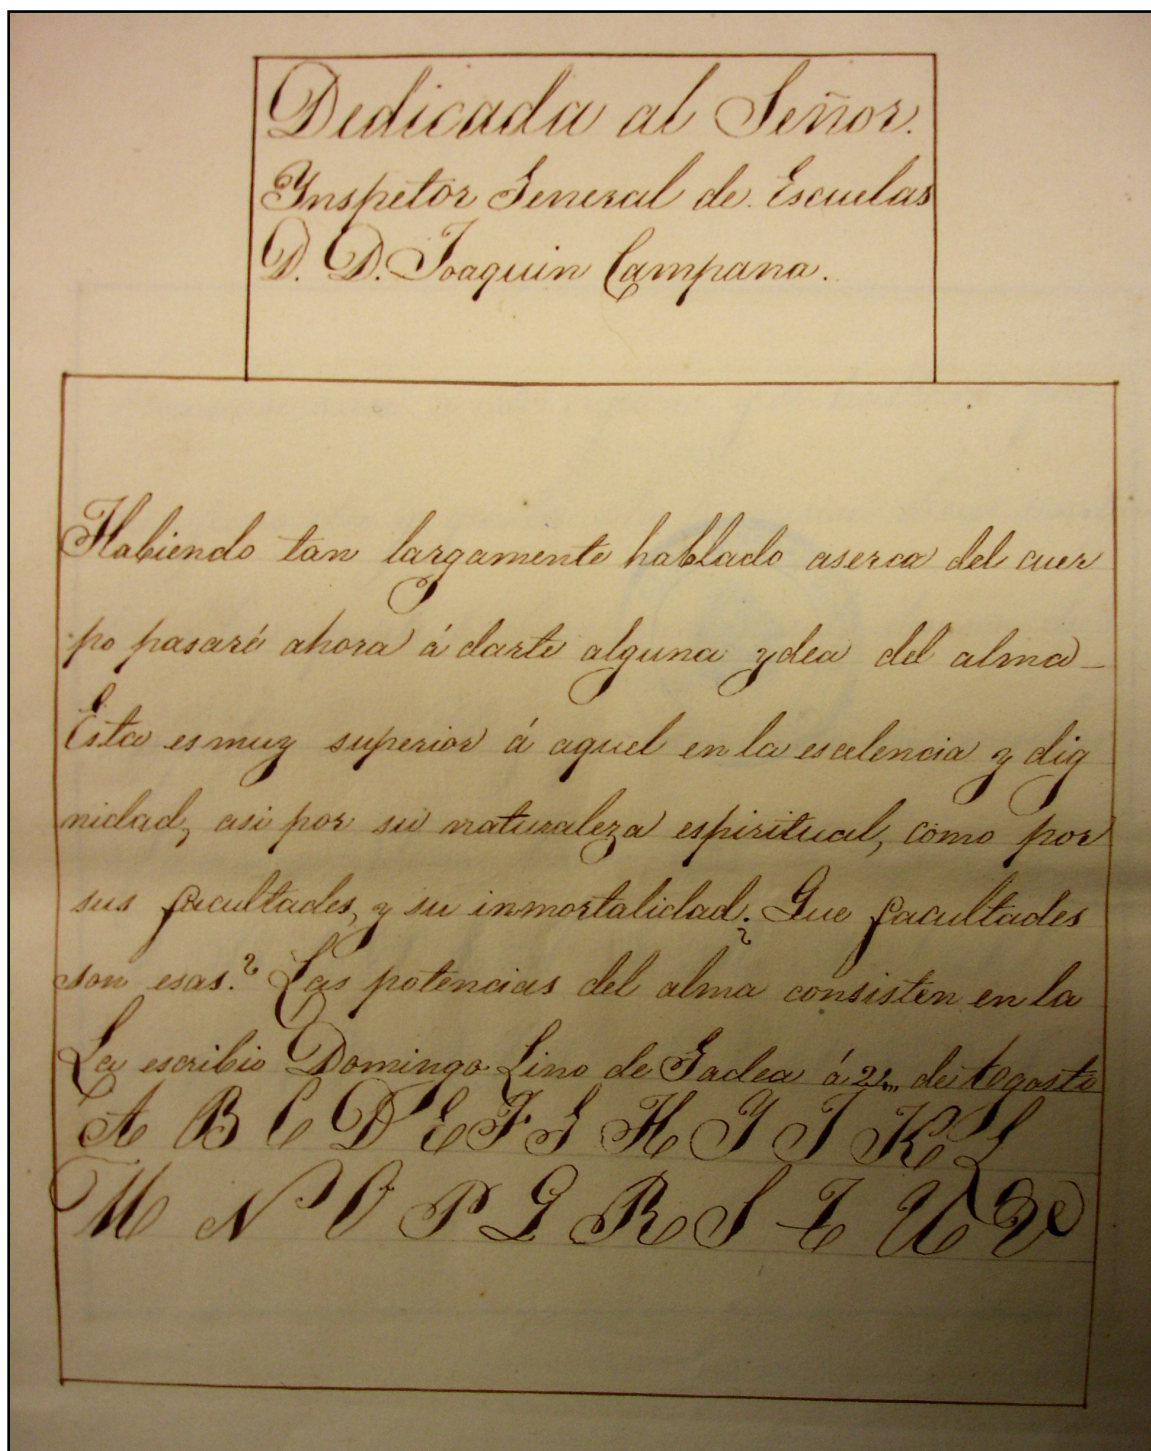 Dedicada al Señor.
Ynspetor General de Escuelas
D. D. Joaquin Campana.
Habiendo tan largamente hablado aserca del cuer
po pasaré ahora á darte alguna ydea del alma_
Esta es muy superior á aquel en la escelencia y dig
nidad, asi por su naturaleza espiritual, como por
sus facultades, y su inmortalidad. ¿Que facultades
son esas.? Las potencias del alma consisten en la
La escribio Domingo Lino de Gadea á de Agosto
A B C D E F G H Y J K L
M N O P Q R S T U V